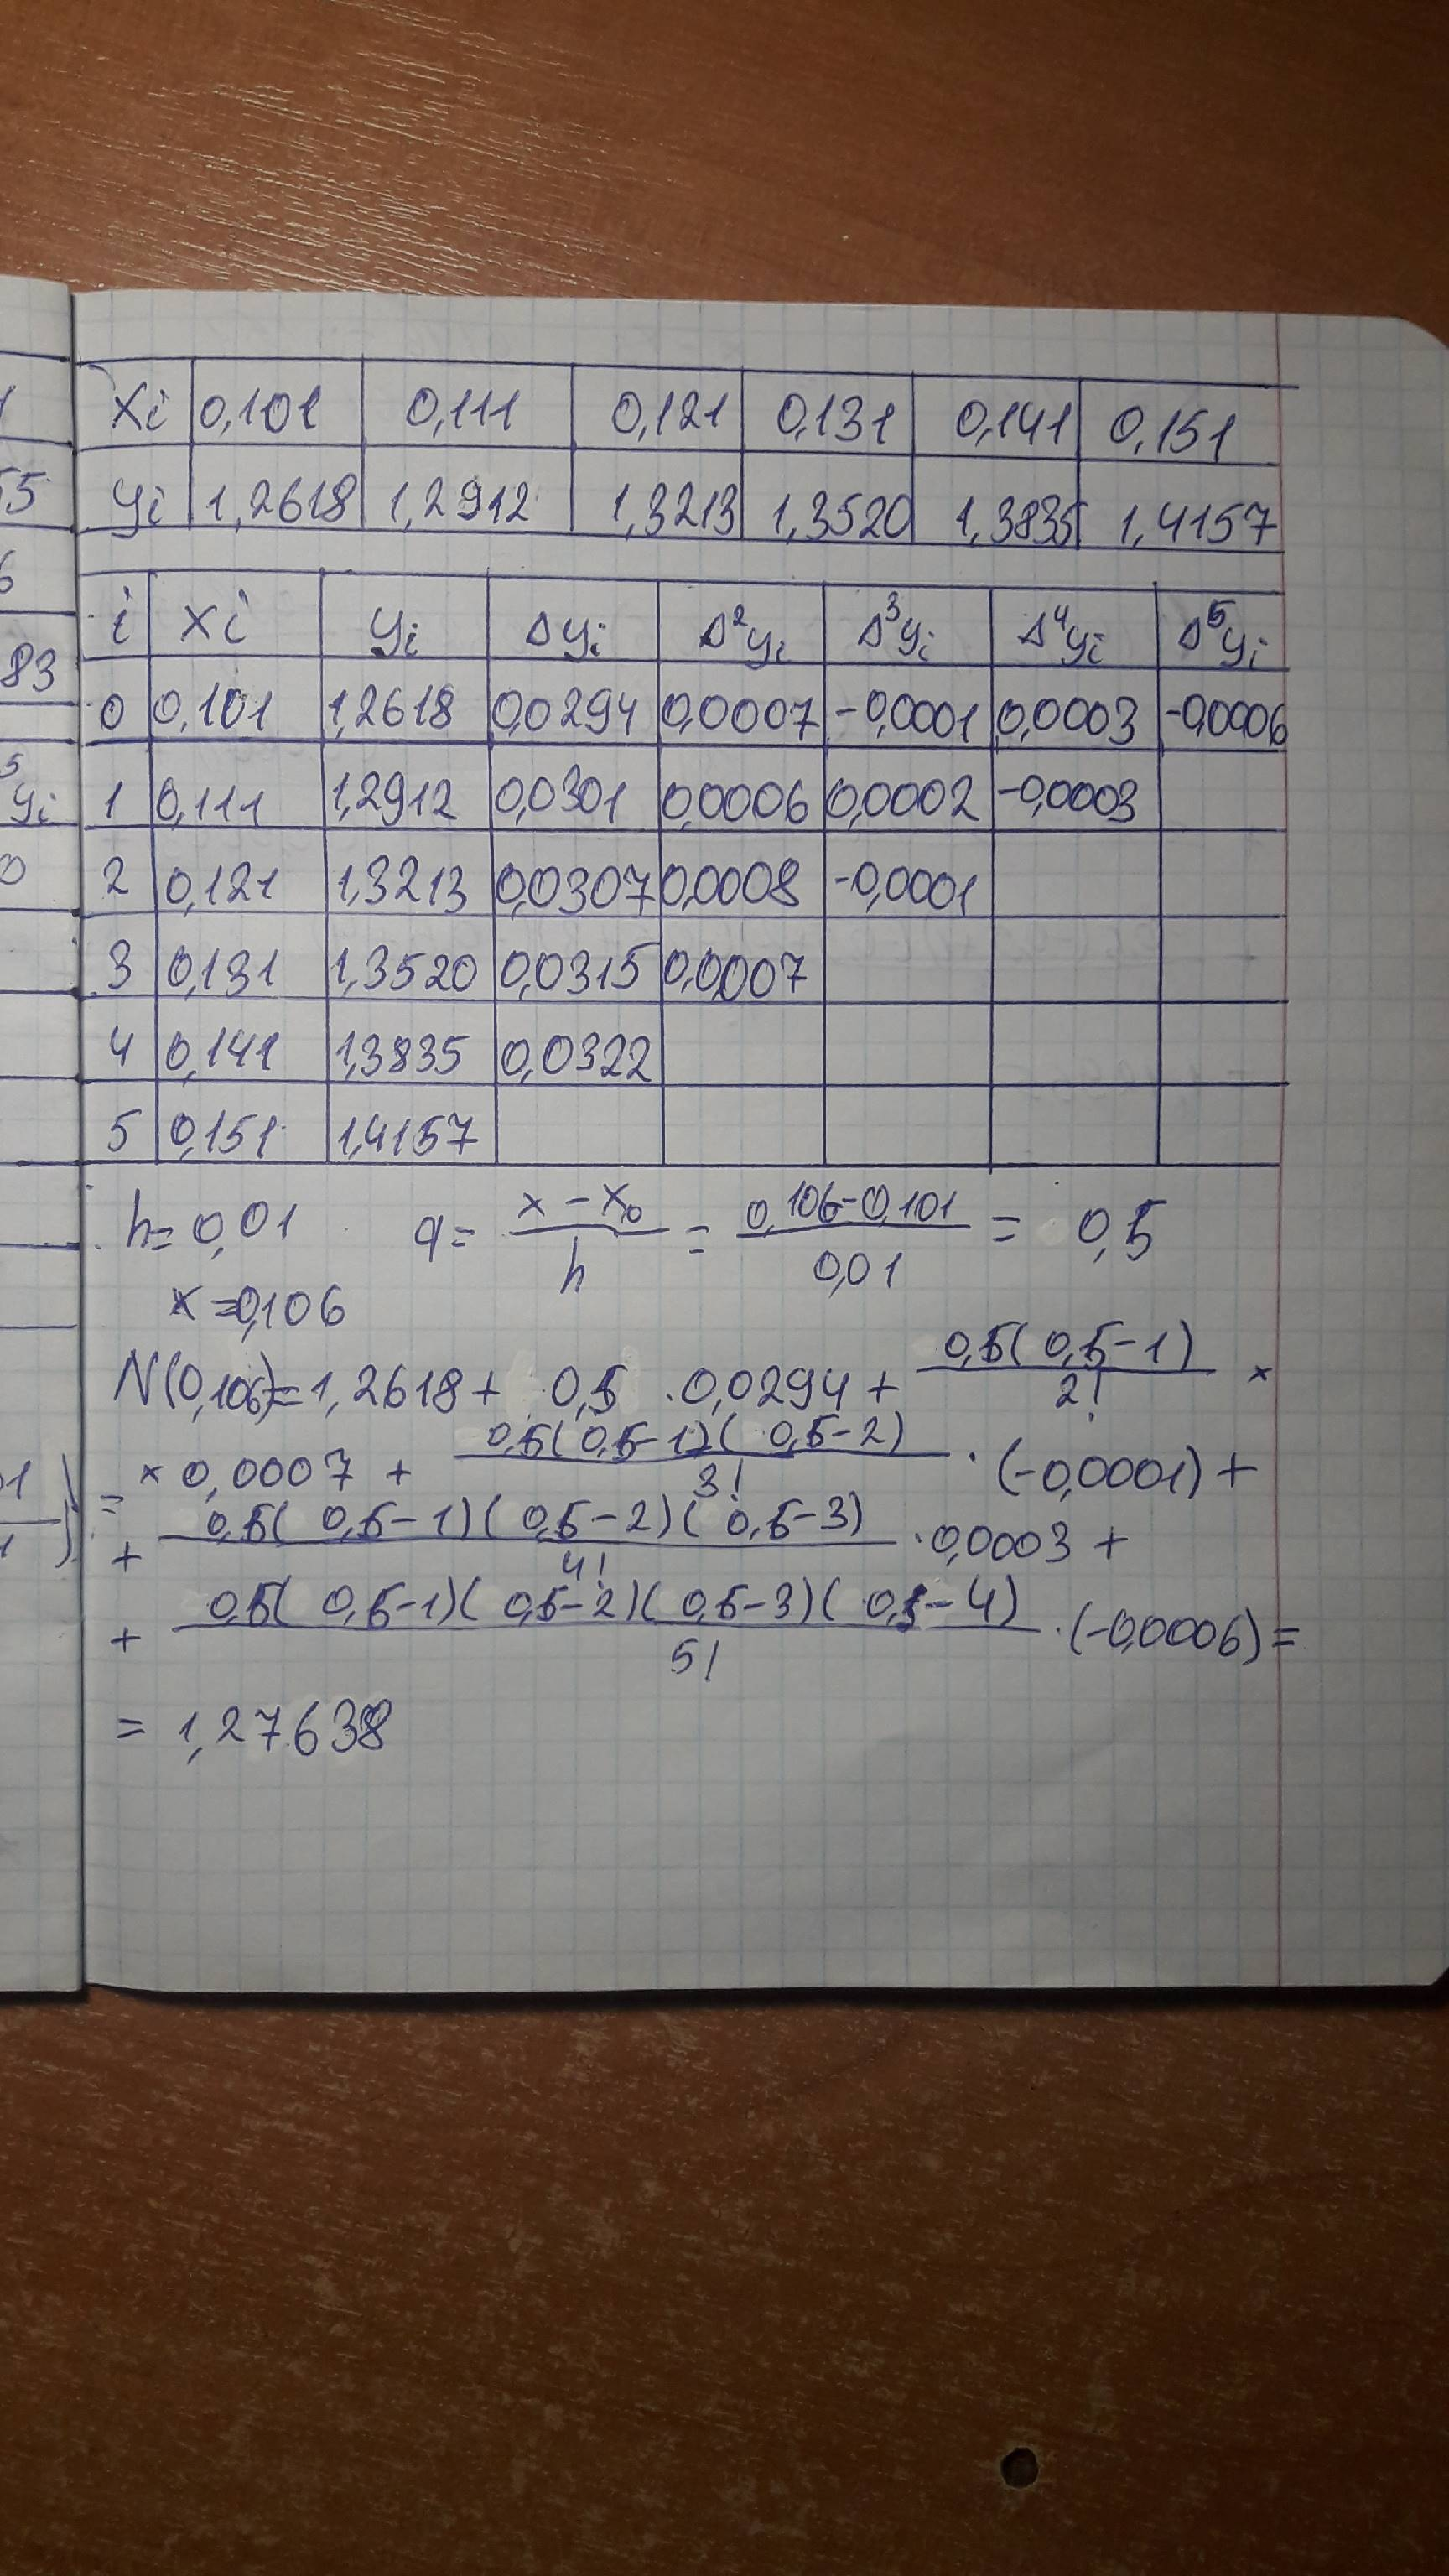 xi 0,101 0,111 0,121 0,131 0,141 0,151
yi 1,2618 1,2912 1,3213 1,3520 1,3835 1,4157
i xi yi Δyi Δ²yi Δ³yi Δ⁴yi Δ⁵yi
0 0,101 1,2618 0,0294 0,0007 -0,0001 0,0003 -0,0006
1 0,111 1,2912 0,0301 0,0006 0,0002 -0,0003
2 0,121 1,3213 0,0307 0,0008 -0,0001
3 0,131 1,3520 0,0315 0,0007
4 0,141 1,3835 0,0322
5 0,151 1,4157
h=0,01 q= (x-x₀)/h = (0,106-0,101)/0,01 = 0,5
x=0,106
N(0,106)=1,2618+ 0,5 ·0,0294+ 0,5(0,5-1)/2! ×
×0,0007 + 0,5(0,5-1)(0,5-2)/3! ·(-0,0001)+
+ 0,5(0,5-1)(0,5-2)(0,5-3)/4! ·0,0003+
+ 0,5(0,5-1)(0,5-2)(0,5-3)(0,5-4)/5! ·(-0,0006)=
= 1,27638
55
83
yi